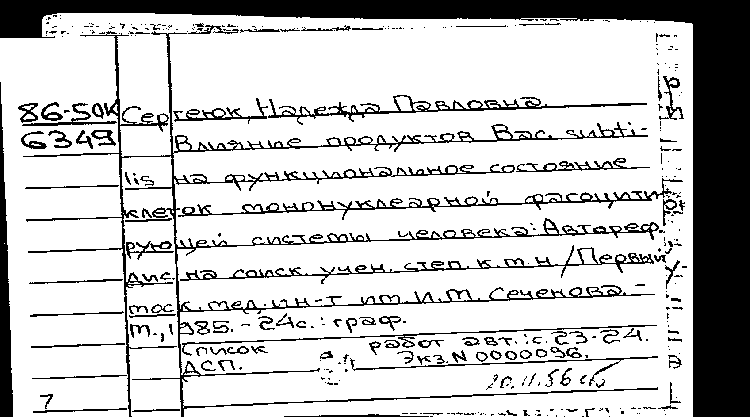 86-50К Сергеюк, Надежда Павловна.
6349 Влияние продуктов Bac. subti-
lis на функциональное состояние
клеток мононуклеарной фагоцити-
рующей системы человека: Автореф.
дис. на соиск. учен. степ. к.м.н. / Первый
моск. мед. ин-т им. И.М. Сеченова. -
М., 1985. - 24с. : граф.
Список работ авт.: с. 23-24.
ДСП. Экз. N 0000096.
7